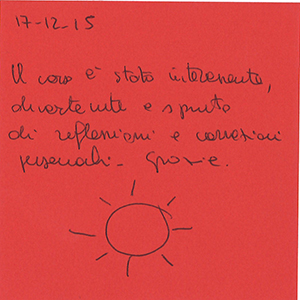 17-12-15
Il corso è stato interessante,
divertente e spunto
di riflessioni e correzioni
personali - Grazie.